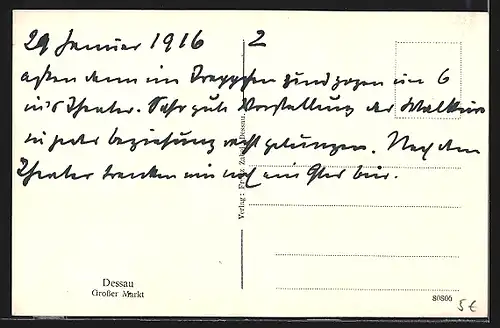 29 Januar 1916 2
aßen dann im und gegen um 6
in's Theater. Sehr gute Vorstellung der Walküre
in jeder beziehung recht gelungen. Nach dem
Theater tranken wir noch ein Glas bier.
Verlag: Franz Zabel, Dessau.
Dessau
Großer Markt
80800
5€